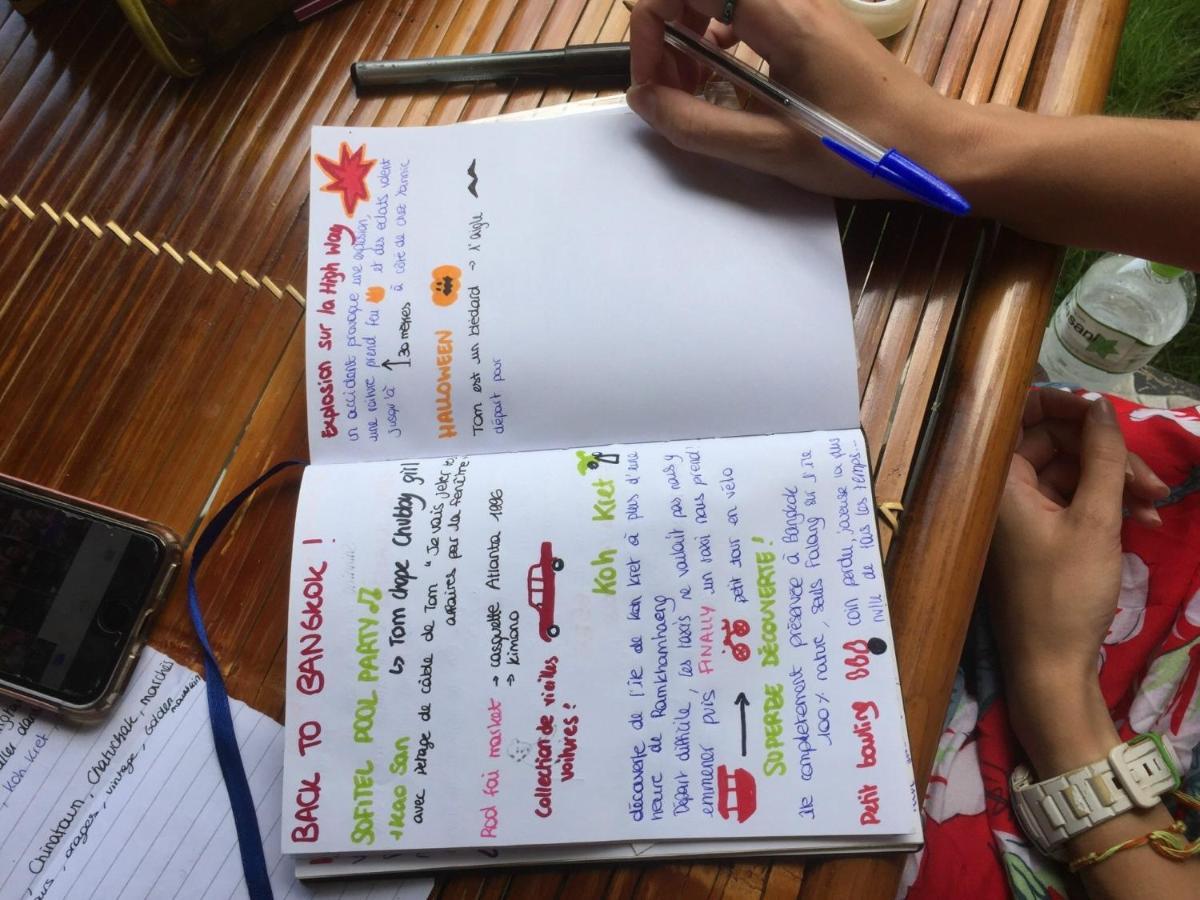 BACK TO BANGKOK !
SOFITEL POOL PARTY
+ Kao San ↳ Tom chope Chubby girl
avec pétage de câble de Tom " Je vais jeter
affaires par la fenêtre
Rod fai market → casquette Atlanta 1996
→ kimono
Collection de vieilles
voitures !
Koh Kret
découverte de l'île de Koh Kret à plus d'une
heure de Ramkhamhaeng
Départ difficile, les taxis ne voulait pas nous y
emmener puis FINALLY un taxi nous prend!
→ petit tour en vélo
SUPERBE DÉCOUVERTE!
île complètement préservée à Bangkok
100% nature, seuls Falang sur l'île
Petit bowling coin perdu, joueuse la plus
nulle de tous les temps...
Explosion sur la High Way
un accident provoque une explosion,
une voiture prend feu et des éclats volent
jusqu'à ↑ 30 mètres à côté de chez Yannic
HALLOWEEN
Tom est un blédard → l'aigle
départ pour
aller dans
Koh Kret
Chinatown, Chatuchak, marchés
orages, vintage, Golden
mountain